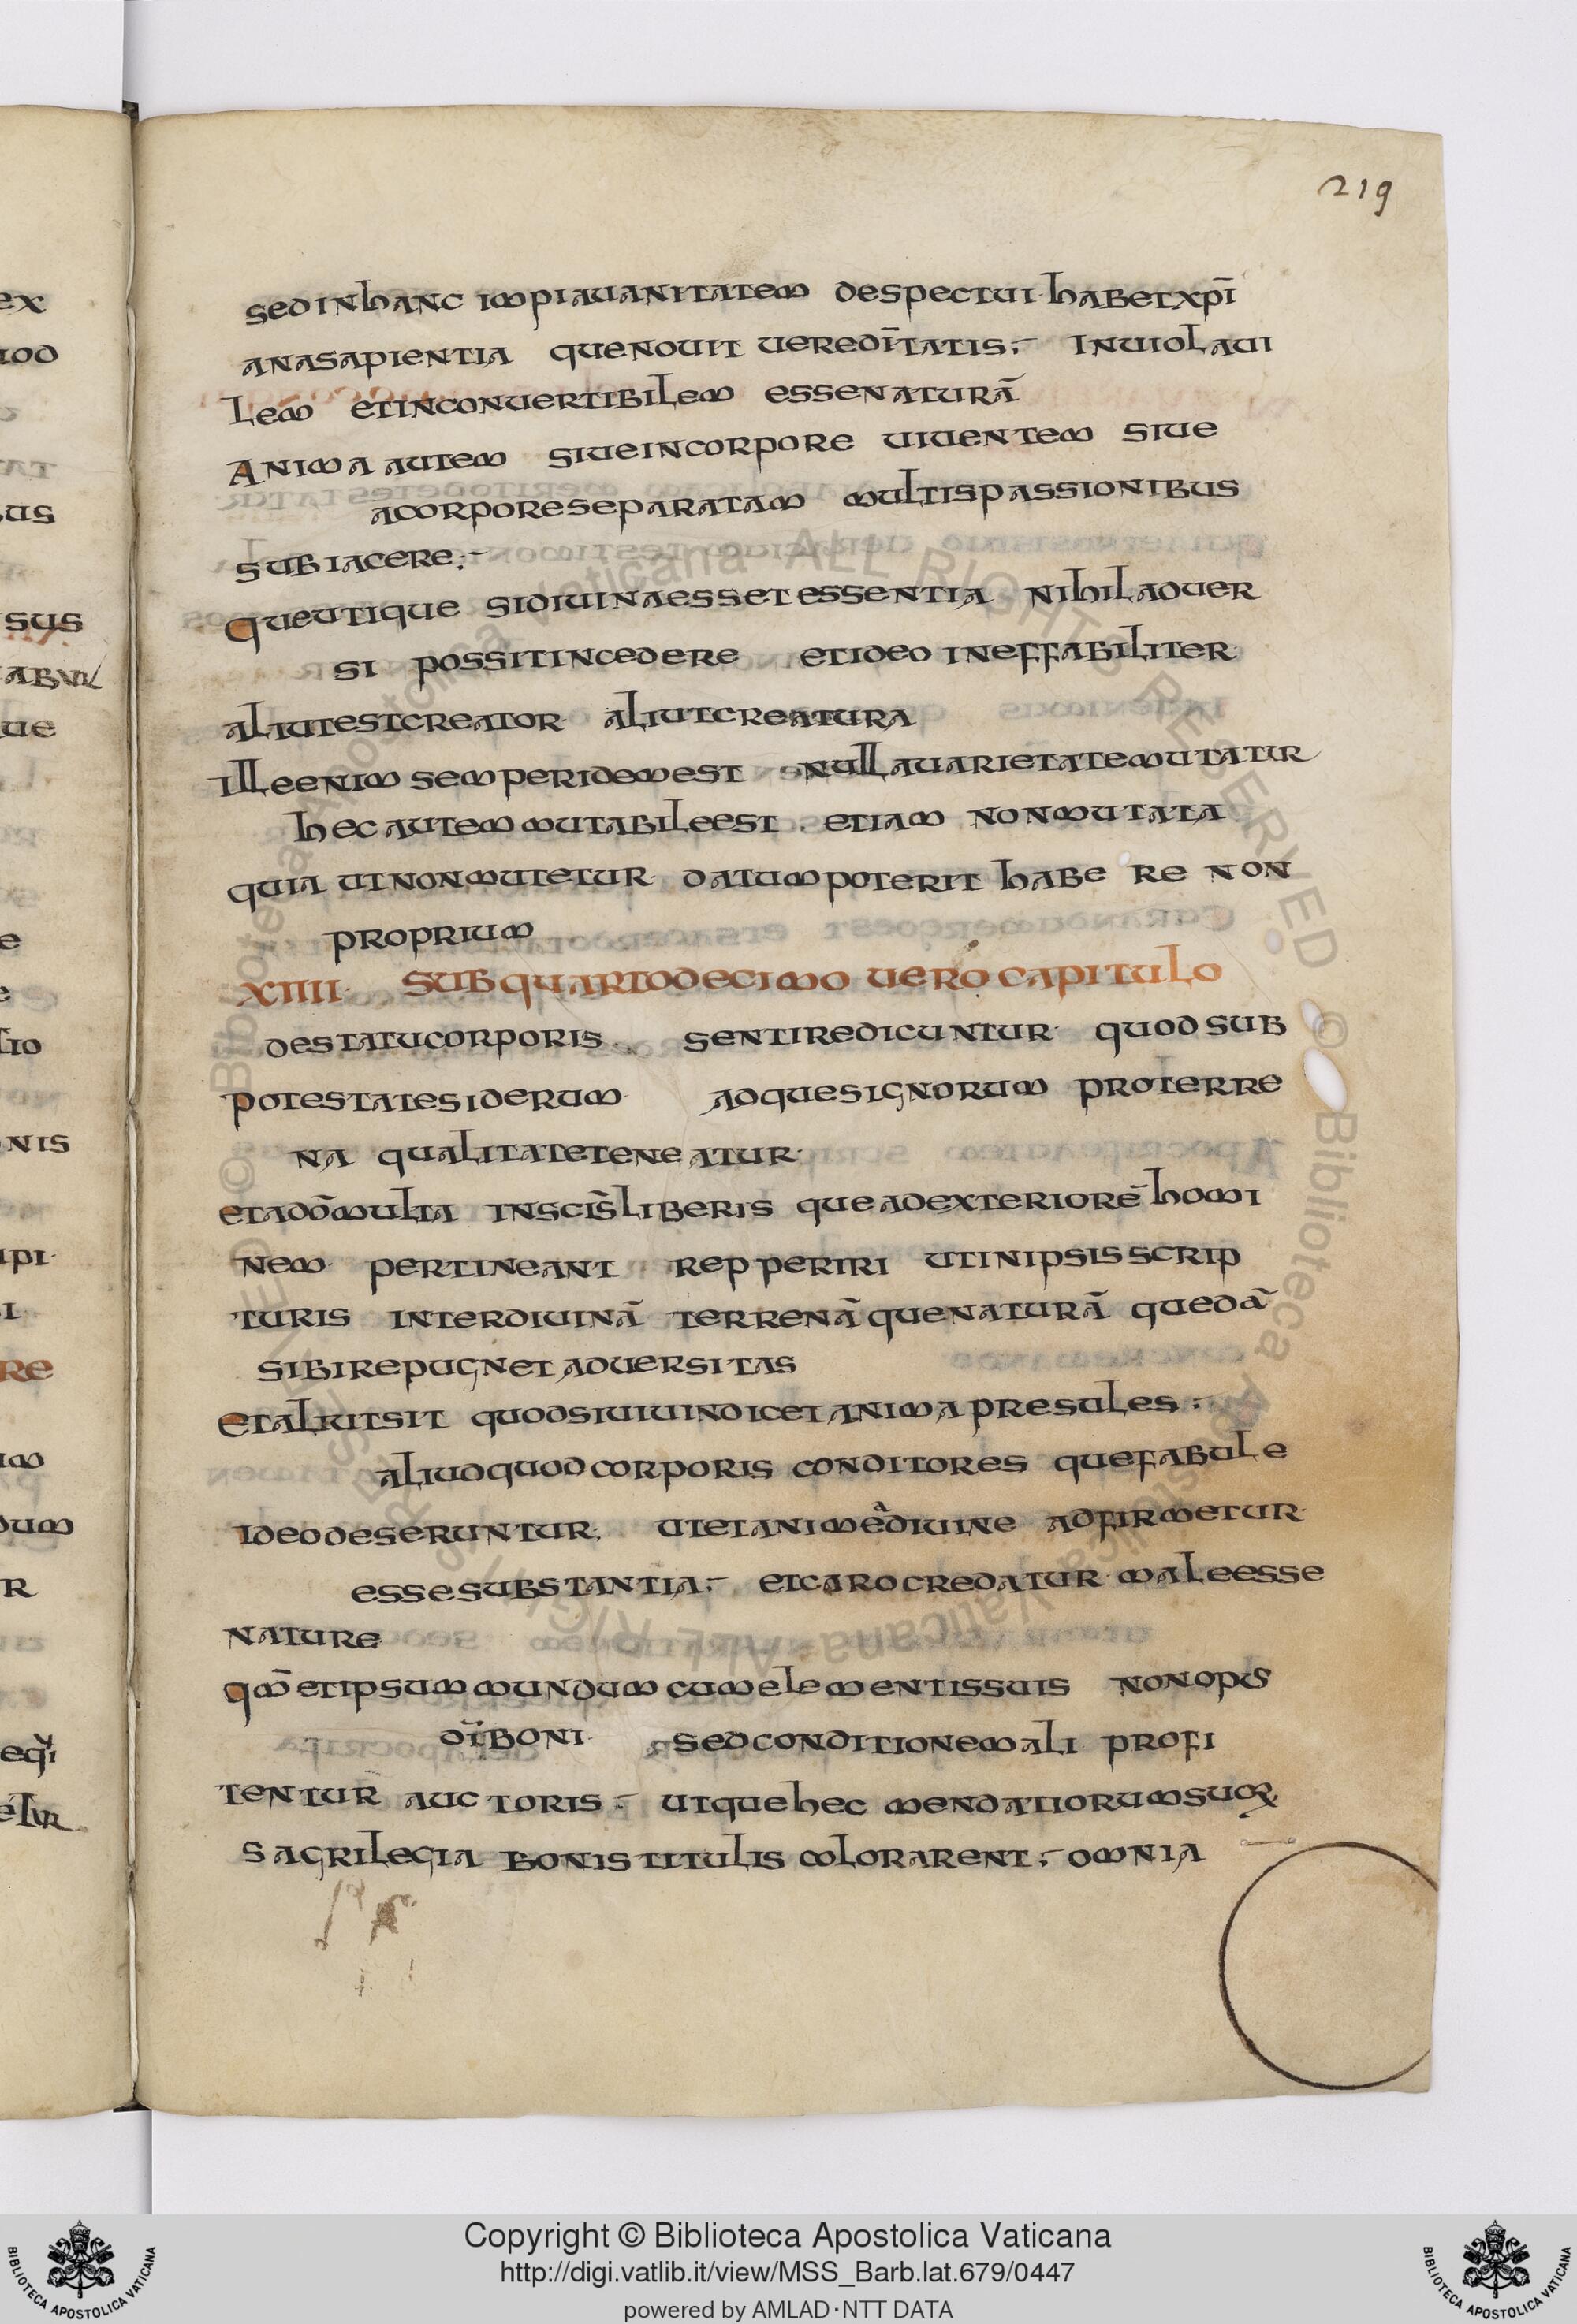 219
sedinhanc impiauanitatem despectui· habetxp̄i
anasapientia quenouit ueredītatis:- Inuiolaui
Lem etinconuertibilem essenaturā
Anima autem siueincorpore uiuentem siue
acorporeseparatam multispassionibus
subiacere:-
queutique sidiuinaessetessentia nihiladuer
si possitincedere etideo ineffabiliter·
aliutestcreator· aliutcreatura
Illeenim semperidemest nullauarietatemutatur
hec autem mutabileest· etiam nonmutata
quia utnonmutetur· datumpoterit habe re non
proprium
XIIII· sub quartodecimo uero capitulo
destatucorporis· sentiredicuntur· quod sub
potestatesiderum· adquesignorum proterre
na qualitateteneatur·
etadōmulta inscīsliberis queadexteriorē homi
nem· pertineant repperiri utinipsisscrip
turis interdiuinā terrenāquenaturā quedā
sibirepugnetaduersitas
etaliutsit quodsiuiuindicetanimapresules:
aliudquodcorporis conditores quefabule
Ideodeseruntur· utetanimediuine adfirmetur·
essesubstantia:- etcarocredatur·maleesse
nature
qm̄etipsummundumcumelementissuis nonopus
dīboni· sedconditionemali profi
tentur auctoris:- utquehec mendatiorumsuoꝝ
sacrilegia bonistitulis colorarent:- omnia
ex
iod
us
sus
ue
e
e
tio
nis
ipi·
i
re
um
dum
r
Copyright © Biblioteca Apostolica Vaticana
http://digi.vatlib.it/view/MSS_Barb.lat.679/0447
powered by AMLAD·NTT DATA
BIBLIOTECA APOSTOLICA VATICANA
BIBLIOTECA APOSTOLICA VATICANA
© Biblioteca Apostolica Vaticana ALL RIGHTS RESERVED